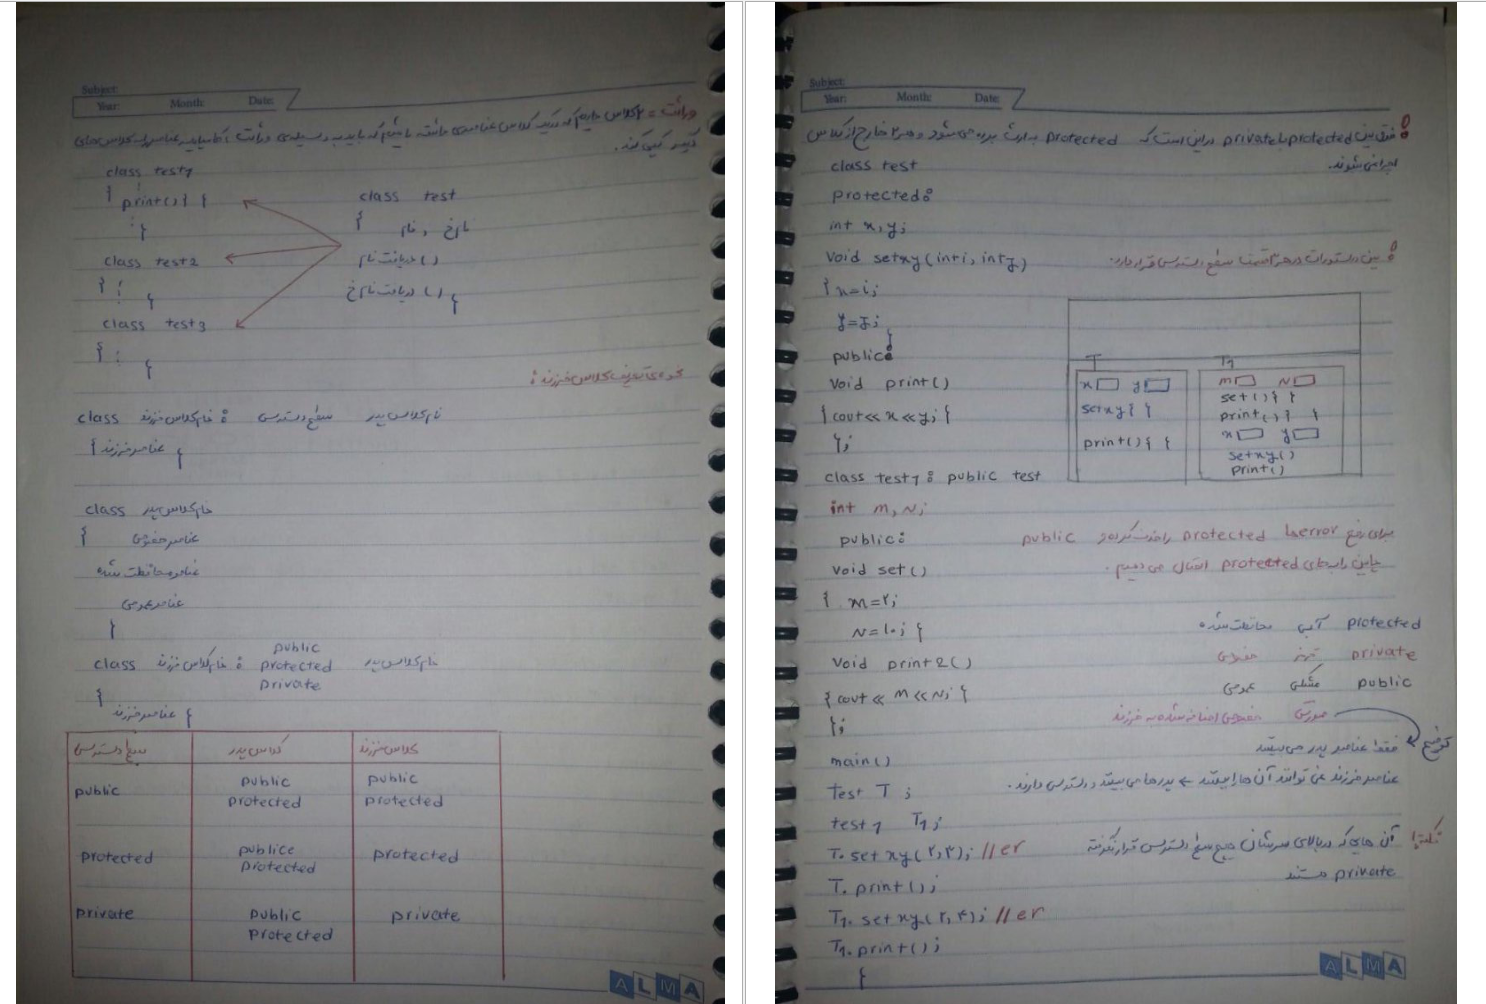 Subject:
Year: Month: Date:
وراثت = ۲ کلاس داریم که
کلاس عناصری داشته باشیم که باید به وسیله‌ی وراثت
class test1
{ print() { }
}
class test2
{ }
class test3
{ }
class test
{ تاریخ , نام
دریافت نام ()
دریافت تاریخ () }
نحوه‌ی تعریف کلاس فرزند :
class نام کلاس فرزند : سطح دسترسی نام کلاس پدر
{ عناصر فرزند }
class نام کلاس پدر
{ عناصر خصوصی
عناصر محافظت شده
عناصر عمومی
}
public
class نام کلاس فرزند : protected نام کلاس پدر
private
{
عناصر فرزند }
سطح دسترسی کلاس پدر کلاس فرزند
public public public
protected protected
protected publice protected
protected
private public private
protected
ALMA
Subject:
Year: Month: Date:
فرق بین protected با private در این است که protected به ارث برده می شود و هر ۲ خارج از کلاس
اجرا نمی شوند.
class test
protected:
int x,y;
void setxy(int i, int y)
{ x=i;
y=j;
}
public:
void print()
{ cout<< x << y; }
};
class test1 : public test
int m,N;
public:
void set()
{ m=۲;
N=۱۰; }
void print2()
{ cout << M << N; }
};
main()
Test T ;
test1 T1;
T. set xy(۲,۳); // er
T. print();
T1. set xy(۲,۴); // er
T1. print();
}
: بین دستورات در هر قسمت سطح دسترسی قرار دارد.
T T1
x y m N
setxy{ } set(){ }
print(){ }
print(){ } x y
setxy()
print()
برای رفع error ها protected را حذف کرده و public
پایین را به جای protected انتقال می دهیم.
protected آبی محافظت شده
private قرمز خصوصی
public مشکی عمومی
صورتی خصوصی اضافه شده به فرزند
توضیح
فقط عناصر پدر می بینند
عناصر فرزند نمی توانند آن ها را ببینند ← پدرها می بینند و دسترسی دارند.
نکته! آن هایی که در بالای سرشان هیچ سطح دسترسی قرار نگرفته
private هستند
ALMA